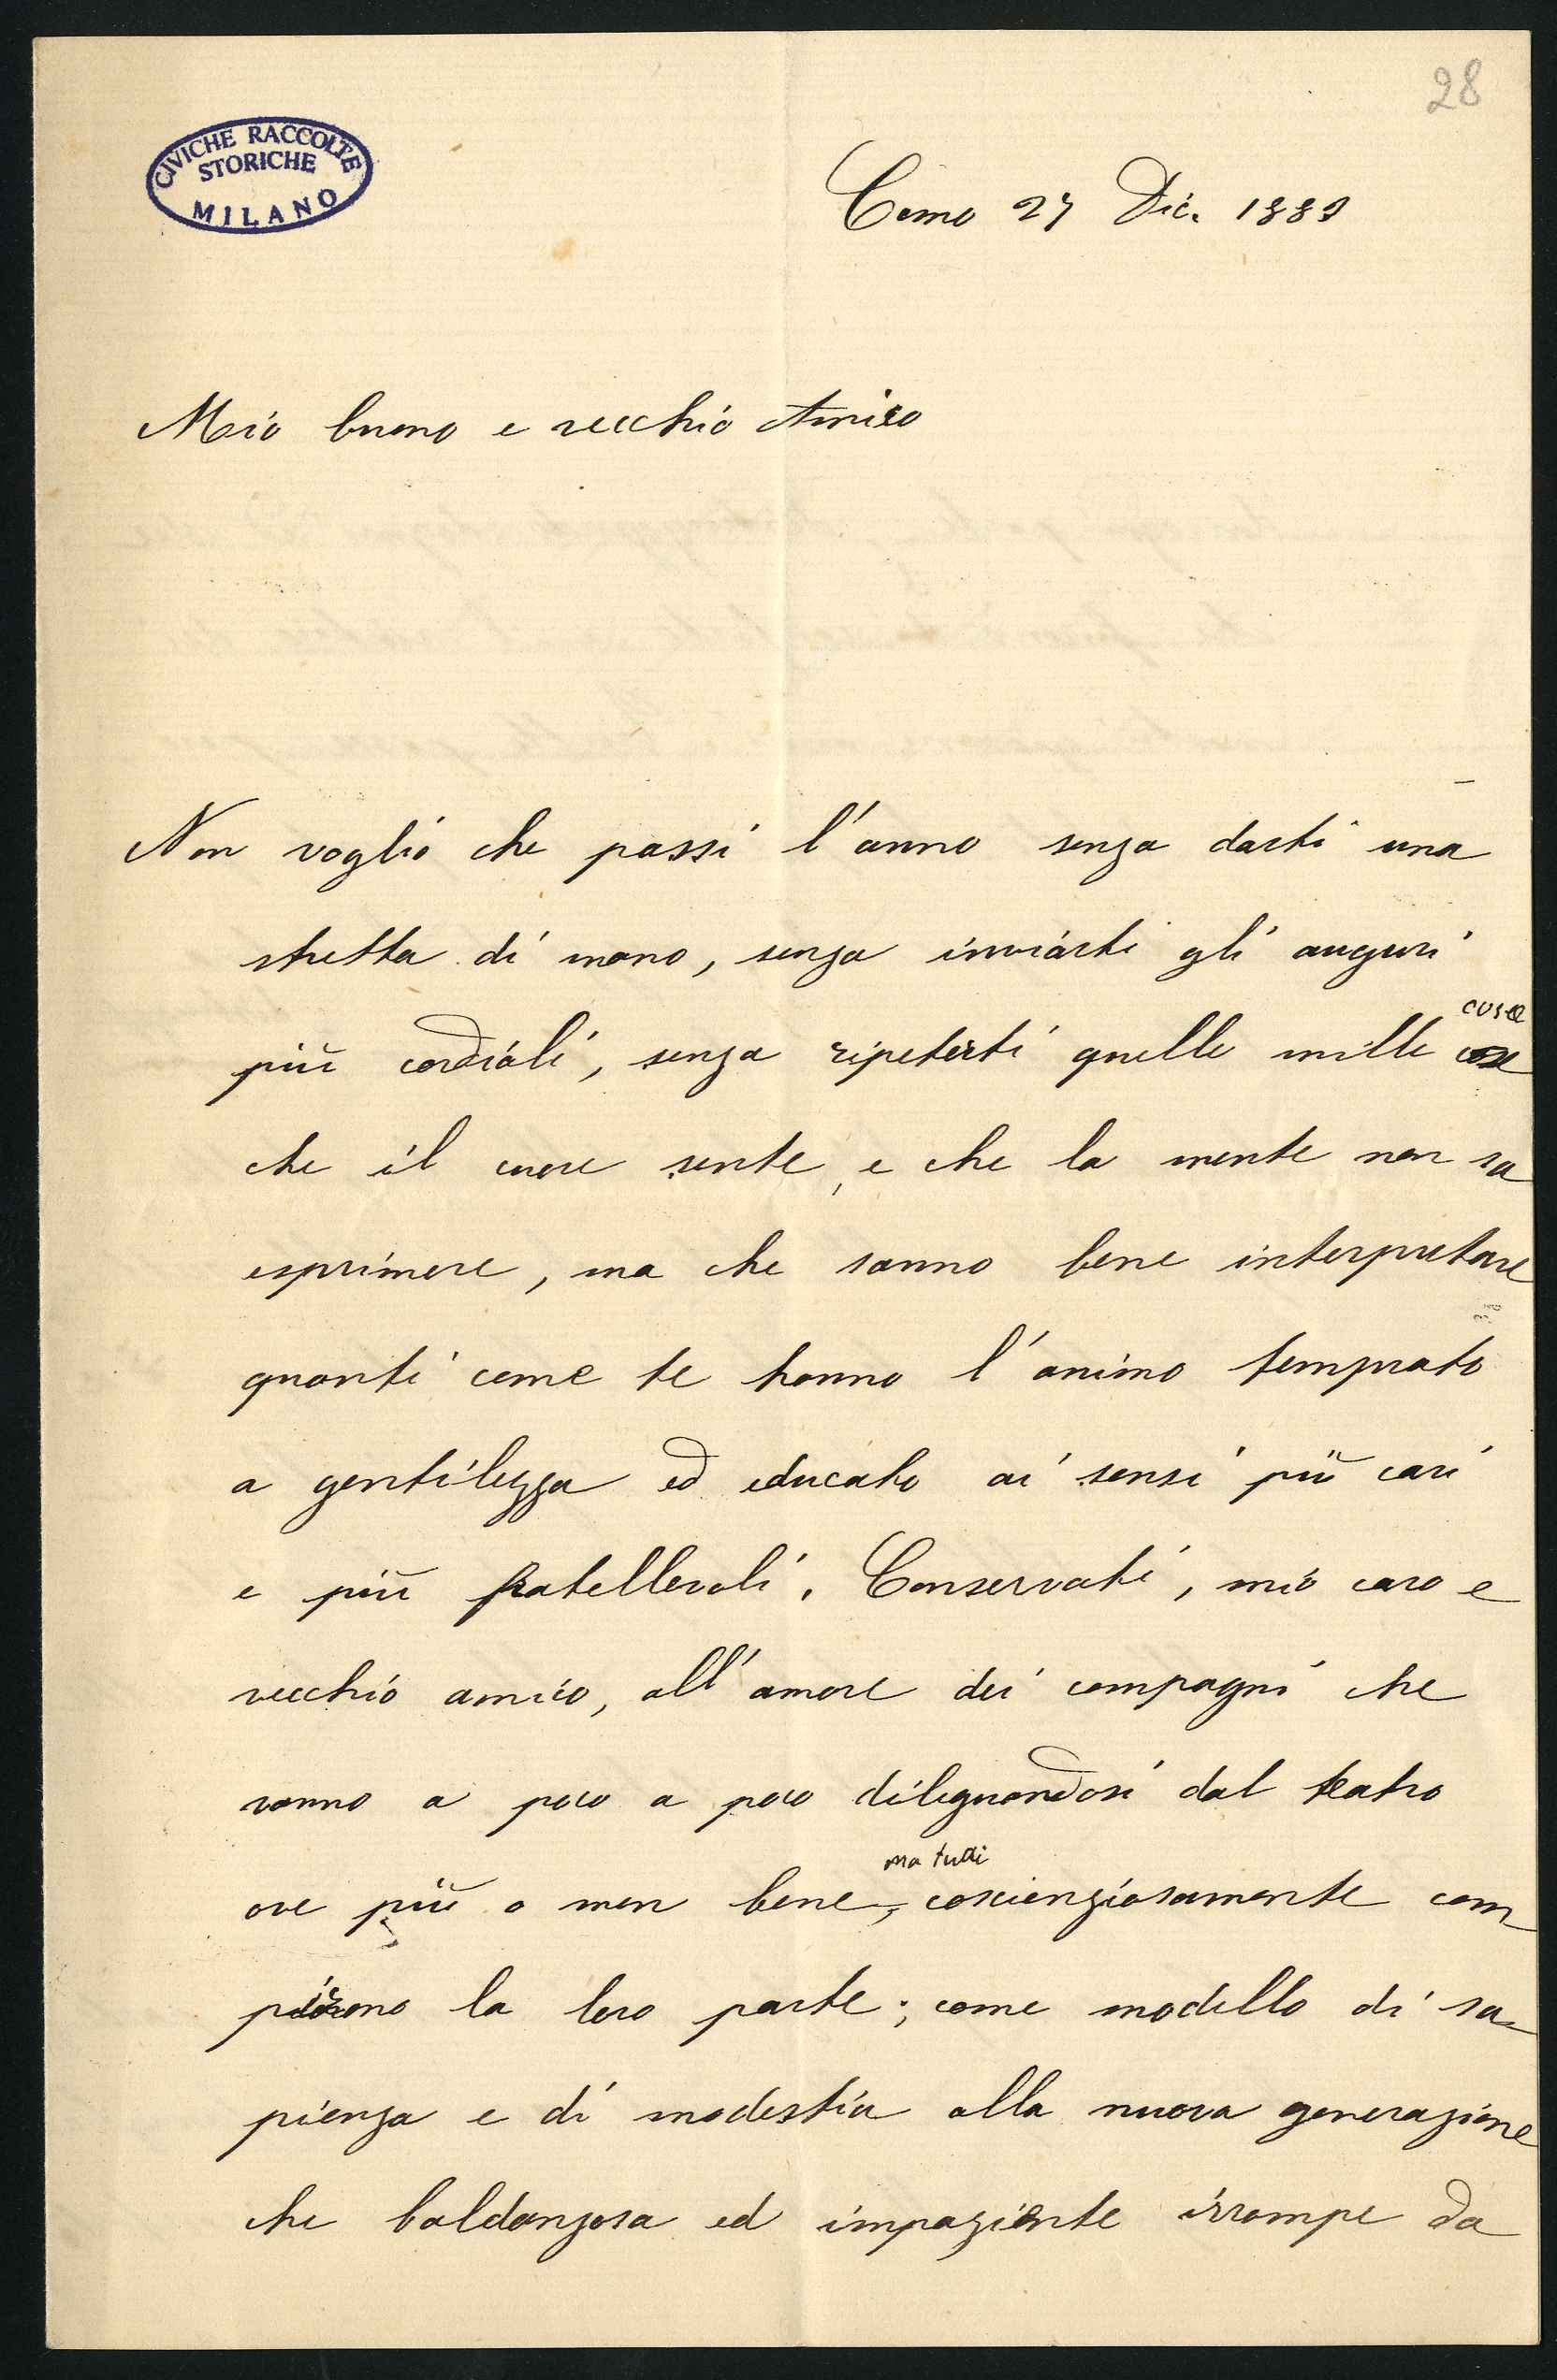 28
CIVICHE RACCOLTE
STORICHE
MILANO
Como 27 Dic. 1889
Mio buono e vecchio Amico
Non voglio che passi l'anno senza darti una
stretta di mano, senza inviarti gli auguri
cose
più cordiali, senza ripeterti quelle mille cose
che il cuore sente, e che la mente non sa
esprimere, ma che sanno bene interpretare
quanti come te hanno l'animo temprato
a gentilezza ed educato ai sensi più cari
e più fratellevoli. Conservati, mio caro e
vecchio amico, all'amore dei compagni che
vanno a poco a poco dileguandosi dal teatro
ma tutti
ove più o men bene, coscienziosamente com
pirono la loro parte; come modello di sa-
pienza e di modestia alla nuova generazione
che baldanzosa ed impaziente irrompe da